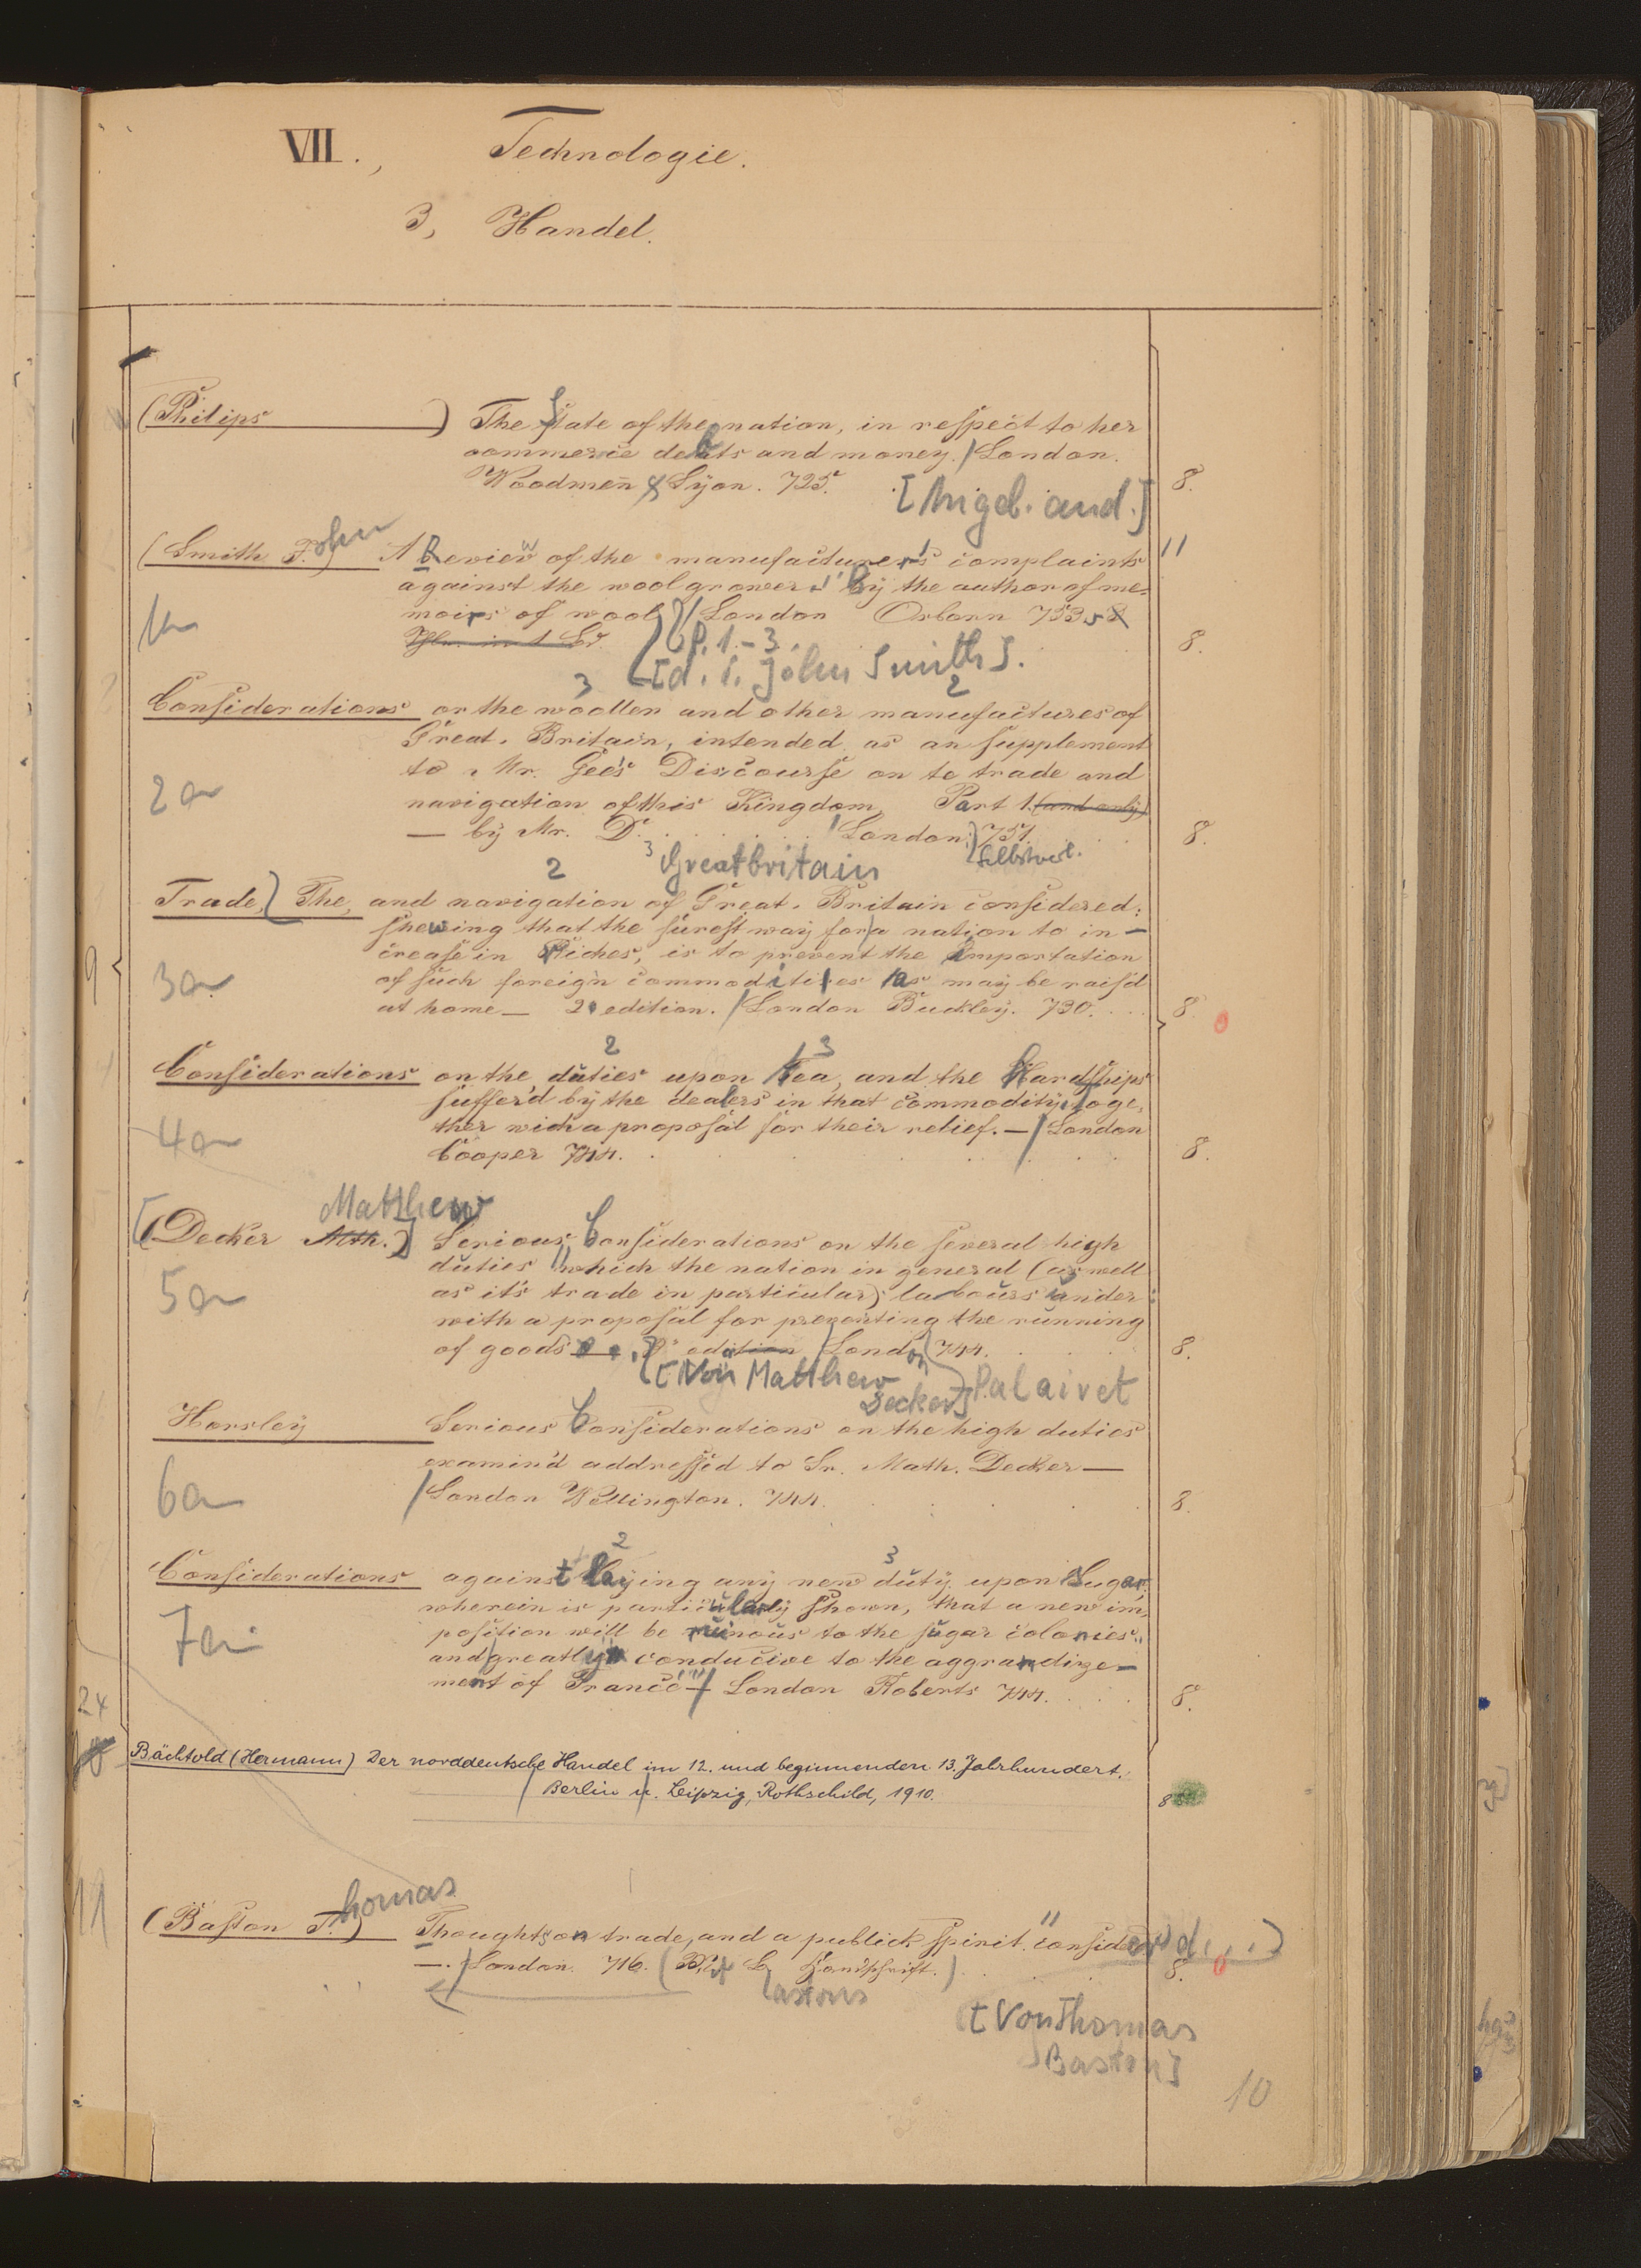 VII., Technologie.
3, Handel.
(Philips ) The State of the nation, in respect to her
commercie debts and money. / London.
Woodmen & Lyon. 725. 8.
[Angeb. and.]
(Smith John A Review of the manufacturer's complaints 11
against the woolgrower. By the author of me-
moirs of wool / London Osborn 753.
1a P. 1.-3. 8.
[d. i. John Smith].
3 2
Considerations on the woollen and other manufactures of
Great. Britain, intended as an supplement
to Mr. Gee's Discourse on te trade and
2a navigation of this Kingdom, Part 1. (and only)
— by Mr. D. London. 751. 8.
Selbstverl.
2 3 Greatbritain
Trade, The, and navigation of Great. Britain considered:
shewing that the surest way for a nation to in-
9 crease in Riches, is to prevent the importation
3a of such foreign commodities as may be rais'd
at home — 2 edition. / London Buckley. 730. 8.
2 3
Considerations on the duties upon Tea, and the Hardships
suffer'd by the dealers in that commodity, toge-
4a ther wich a proposal for their relief. — / London
Cooper 744. 8.
Matthew
[(Decker Mth.)] Serious Considerations on the several high
duties which the nation in general (as well
5a as it's trade in particular) labours under:
with a proposal for preventing the running
of goods edition London 744. 8.
[Von Matthew
Decker] Palairet
Horsley Serious Considerations on the high duties
examin'd addressed to Sr. Math. Decker —
6a / London Wellington. 744. 8.
2 3
Considerations against laying any new duty upon Sugar,
wherein is particularly shown, that a new im-
7a position will be ruinous to the sugar colonies
and greatly conducive to the aggrandize-
ment of France — / London Roberts 744. 8.
24
Bächtold (Hermann) Der norddeutsche Handel im 12. und beginnenden 13. Jahrhundert.
/ Berlin u. Leipzig, Rothschild, 1910. 8
11
(Baston Thomas) Thoughts on trade, and a publick spirit. consider'd,..)
—. / London. 716. (Mit B. Handschrift.) 8.
Bastons
[Von Thomas
Baston]
10